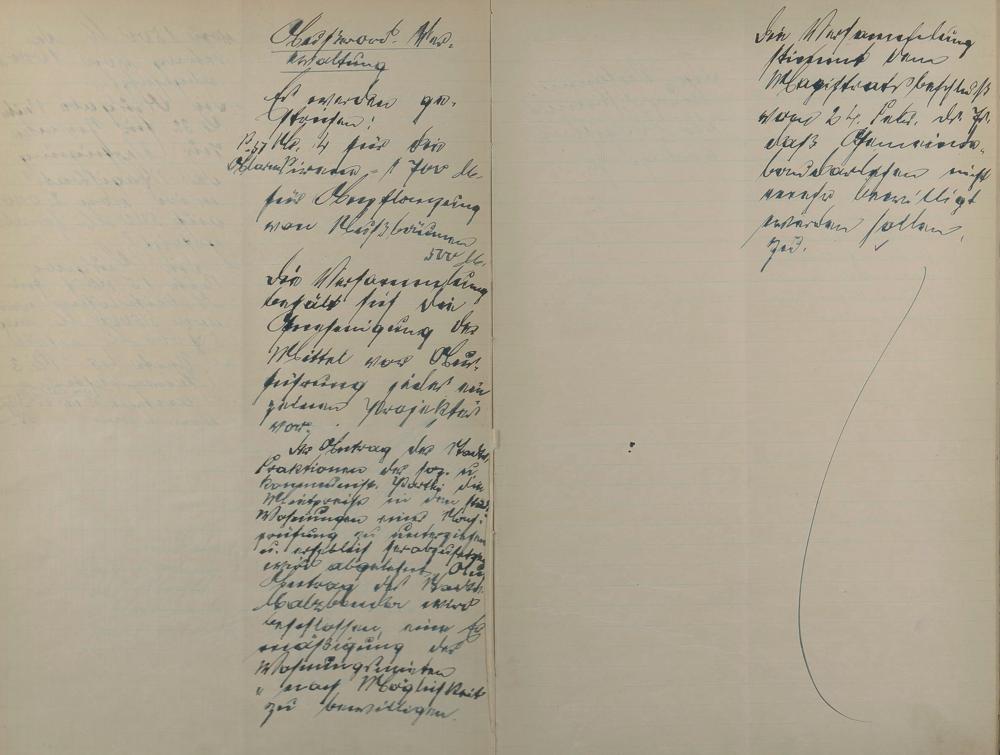 Außerord. Ver-
waltung
Es werden ge-
strichen:
No. 4 für die
Alarmsirene = 1 700 M.
für Anpflanzung
von Nußbäumen
500 M.
Die Versammlung
behält sich die
Genehmigung der
Mittel vor Aus-
führung jedes ein
zelnen Projektes
vor.
Der Antrag der Stadtv.
Fraktionen der soz. u.
kommunist. Partei die
Mietpreise in den städt.
Wohnungen einer Nach-
prüfung zu unterziehen
u. erheblich herabzusetzen
wird abgelehnt. Auf
Antrag des Stadtv.
wird
beschlossen, eine Er
mäßigung der
Wohnungsmieten
nach Möglichkeit
zu bewilligen.
Die Versammlung
stimmt dem
Magistratsbeschluß
vom 24. Febr. ds Js.
daß Gemeinde-
baudarlehen nicht
mehr bewilligt
werden sollen,
zu.